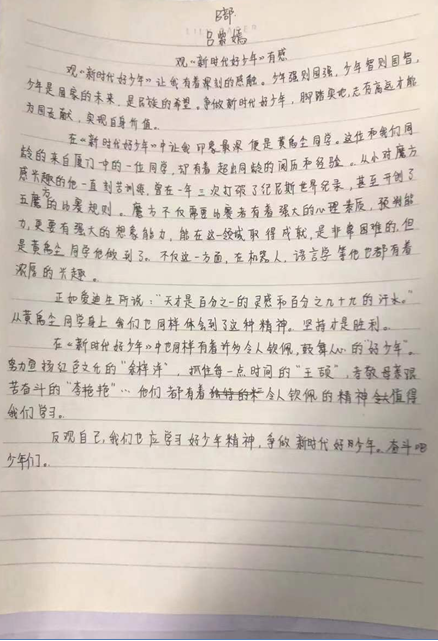 8部
吕嫣
观《新时代好少年》有感
观《新时代好少年》让我有着深刻的感触。少年强则国强，少年智则国智，
少年是国家的未来，是民族的希望。争做新时代好少年，脚踏实地，志存高远才能
为国贡献，实现自身价值。
在《新时代好少年》中让我印象最深便是黄禹尘同学。这位和我们同
龄的来自厦门一中的一位同学，却有着超出同龄的阅历和经验。从小对魔方
感兴趣的他一直刻苦训练，曾在一年三次打破了纪尼斯世界记录，甚至开创了
五魔方的比赛规则。魔方不仅需要比赛者有着强大的心理素质，预判能
力，更要有强大的想象能力，能在这一领域取得成就，是非常困难的，但
是黄禹尘同学他做到了。不仅这一方面，在机器人，语言学等他也都有着
浓厚的兴趣。
正如爱迪生所说：“天才是百分之一的灵感和百分之九十九的汗水。”
从黄禹尘同学身上我们也同样体会到了这种精神。坚持才是胜利。
在《新时代好少年》中也同样有着许多令人钦佩，鼓舞人心的“好少年”。
努力宣扬红色文化的“余梓洋”，抓住每一点时间的“王颐”，孝敬母亲艰
苦奋斗的“李艳艳”…他们都有着令人钦佩的精神值得
我们学习。
反观自己，我们也应学习好少年精神，争做新时代好少年。奋斗吧
少年们。